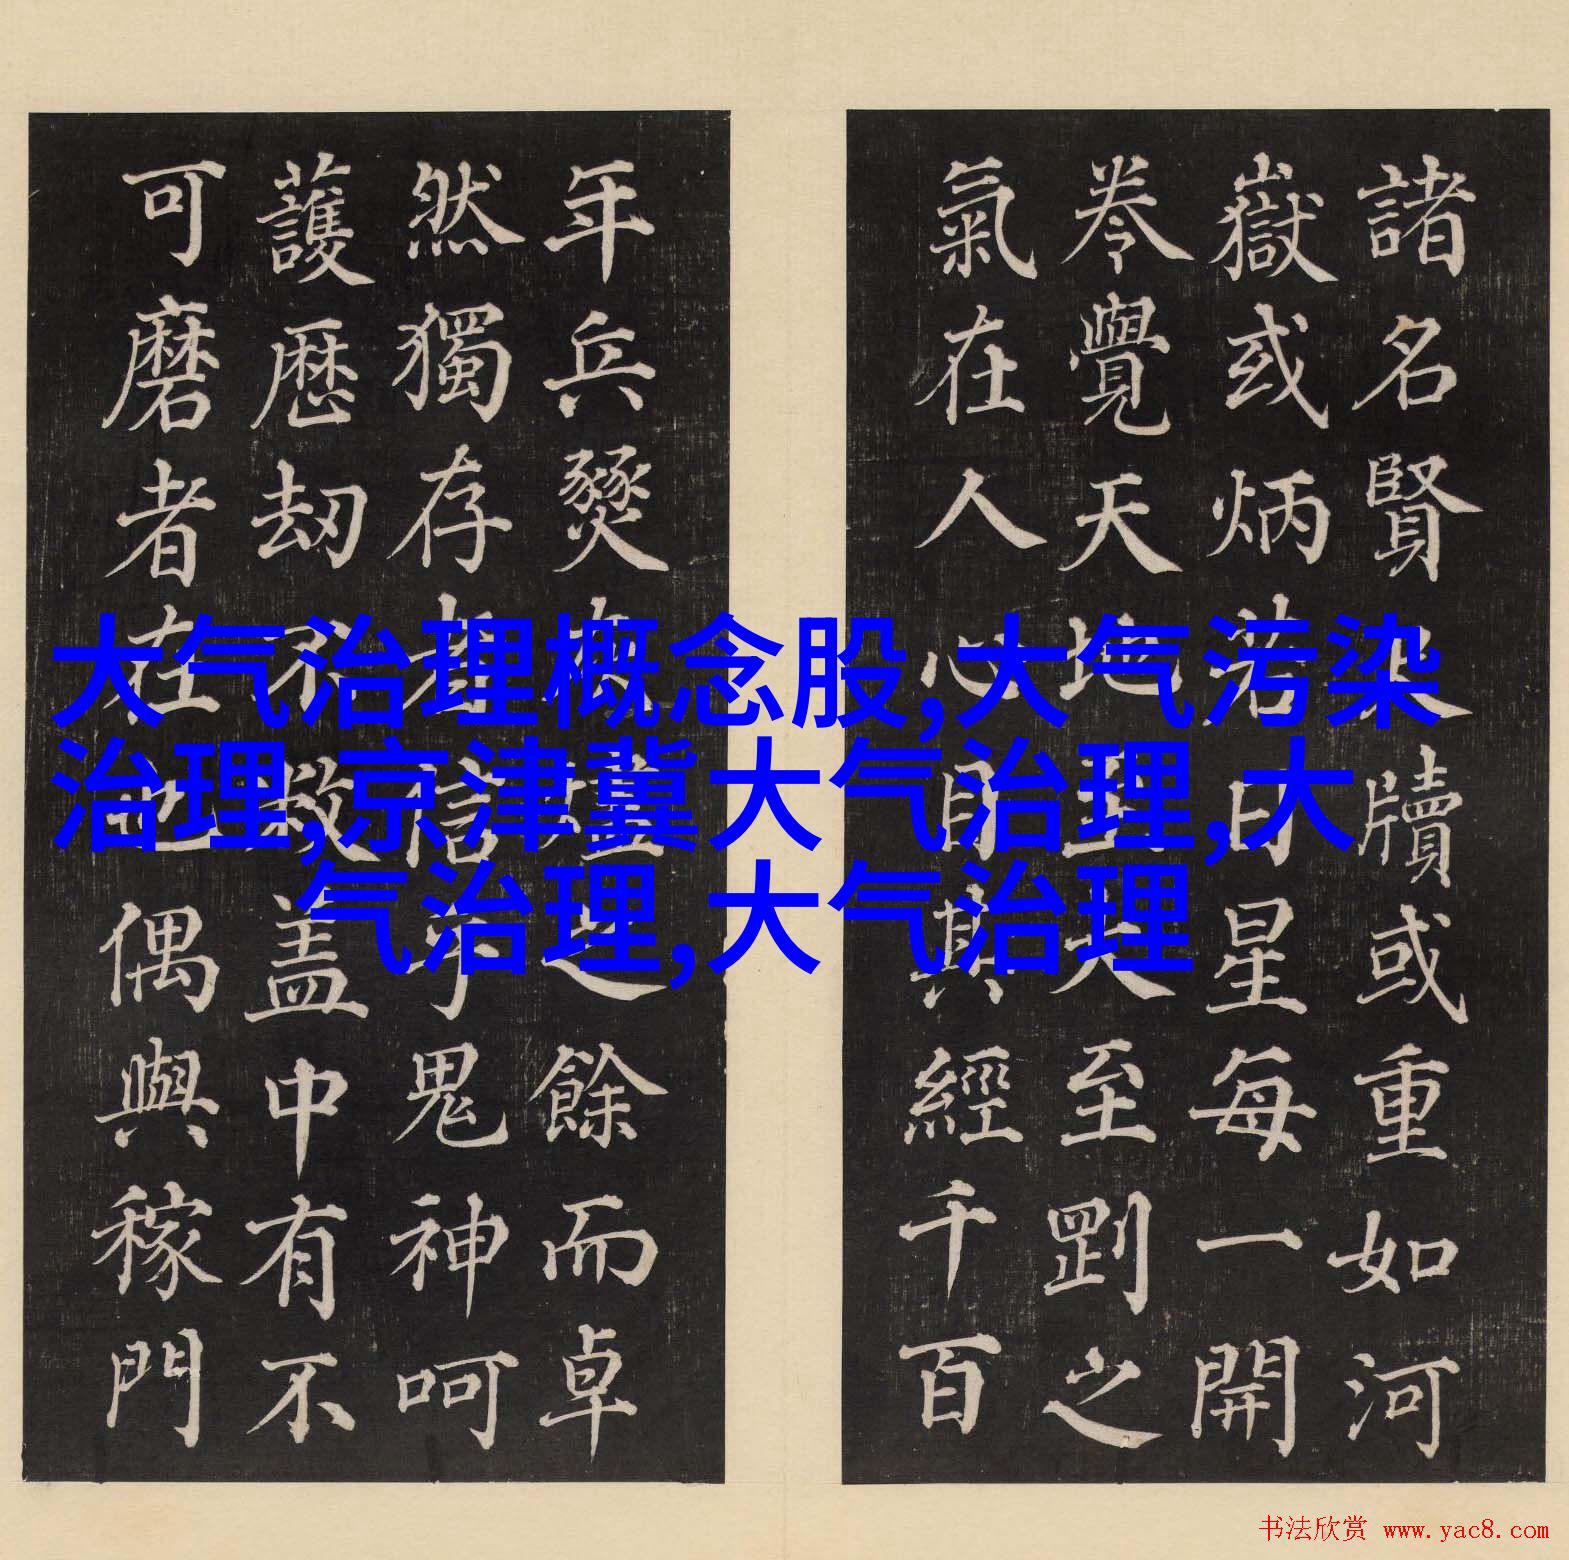 大气治理概念股,大气污染
治理,京津冀大气治理,大
气治理,大气治理
諸名賢牘或重如河
嶽或炳若日星每一開
卷覺天地至大至剛之
氣在人心其經千百
年兵燹之餘而卓
然獨存者信乎鬼神呵
護歷劫不蓋中有不
可磨者在也偶與稼門
书法欣赏 www.yac8.com